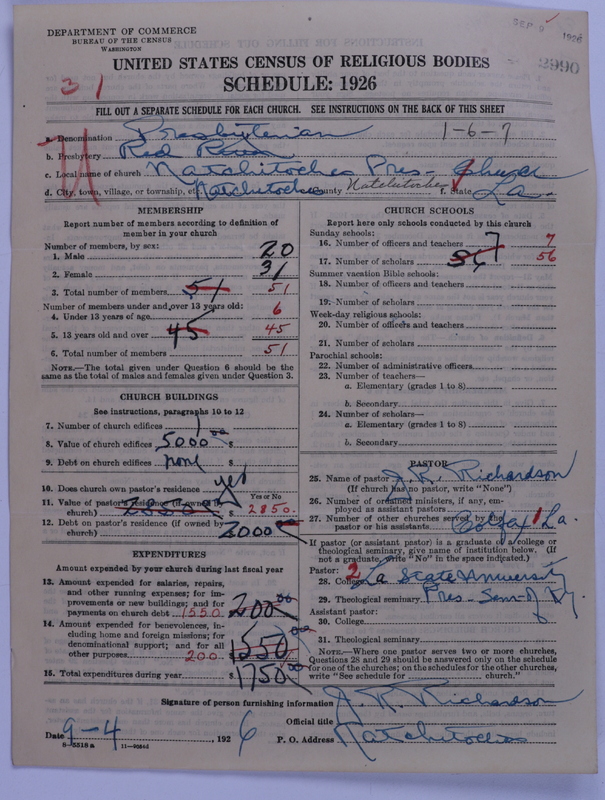 DEPARTMENT OF COMMERCE
BUREAU OF THE CENSUS
WASHINGTON
SEP 9 1926
2990
UNITED STATES CENSUS OF RELIGIOUS BODIES
SCHEDULE: 1926
31
FILL OUT A SEPARATE SCHEDULE FOR EACH CHURCH. SEE INSTRUCTIONS ON THE BACK OF THIS SHEET
a. Denomination Presbyterian 1-6-7
b. Presbytery Red River
c. Local name of church Natchitoches Pres- Church
d. City, town, village, or township, etc. Natchitoches County Natchitoches f. State La.
MEMBERSHIP
Report number of members according to definition of member in your church
Number of members, by sex:
1. Male 20
2. Female 31
3. Total number of members 51 51
Number of members under and over 13 years old:
4. Under 13 years of age 6
5. 13 years old and over 45 45
6. Total number of members 51
NOTE.—The total given under Question 6 should be the same as the total of males and females given under Question 3.
CHURCH BUILDINGS
See instructions, paragraphs 10 to 12
7. Number of church edifices 1
8. Value of church edifices 5000.00 $
9. Debt on church edifices none $
10. Does church own pastor's residence yes
Yes or No
11. Value of pastor's residence (if owned by church) 2850.00 $ 2850.
12. Debt on pastor's residence (if owned by church) 2000.00
EXPENDITURES
Amount expended by your church during last fiscal year
13. Amount expended for salaries, repairs, and other running expenses; for improvements or new buildings; and for payments on church debt 1550. 200.00
14. Amount expended for benevolences, including home and foreign missions; for denominational support; and for all other purposes 200. 1550.00
15. Total expenditures during year $ 1750.00
CHURCH SCHOOLS
Report here only schools conducted by this church
Sunday schools:
16. Number of officers and teachers 7 7
17. Number of scholars 56 56
Summer vacation Bible schools:
18. Number of officers and teachers
19. Number of scholars
Week-day religious schools:
20. Number of officers and teachers
21. Number of scholars
Parochial schools:
22. Number of administrative officers
23. Number of teachers—
a. Elementary (grades 1 to 8)
b. Secondary
24. Number of scholars—
a. Elementary (grades 1 to 8)
b. Secondary
PASTOR
25. Name of pastor J. R. Richardson
(If church has no pastor, write "None")
26. Number of ordained ministers, if any, employed as assistant pastors
27. Number of other churches served by the pastor or his assistants Colfax 1 La.
If pastor (or assistant pastor) is a graduate of a college or theological seminary, give name of institution below. (If not a graduate, write "No" in the space indicated.)
Pastor: 2
28. College La State University
29. Theological seminary Pres- Sem- of Ky.
Assistant pastor:
30. College
31. Theological seminary
NOTE.—Where one pastor serves two or more churches, Questions 28 and 29 should be answered only on the schedule for one of the churches; on the schedules for the other churches, write "See schedule for church."
Signature of person furnishing information J. R. Richardson
Official title
Date 9-4, 1926 P. O. Address Natchitoches
8-5518 a